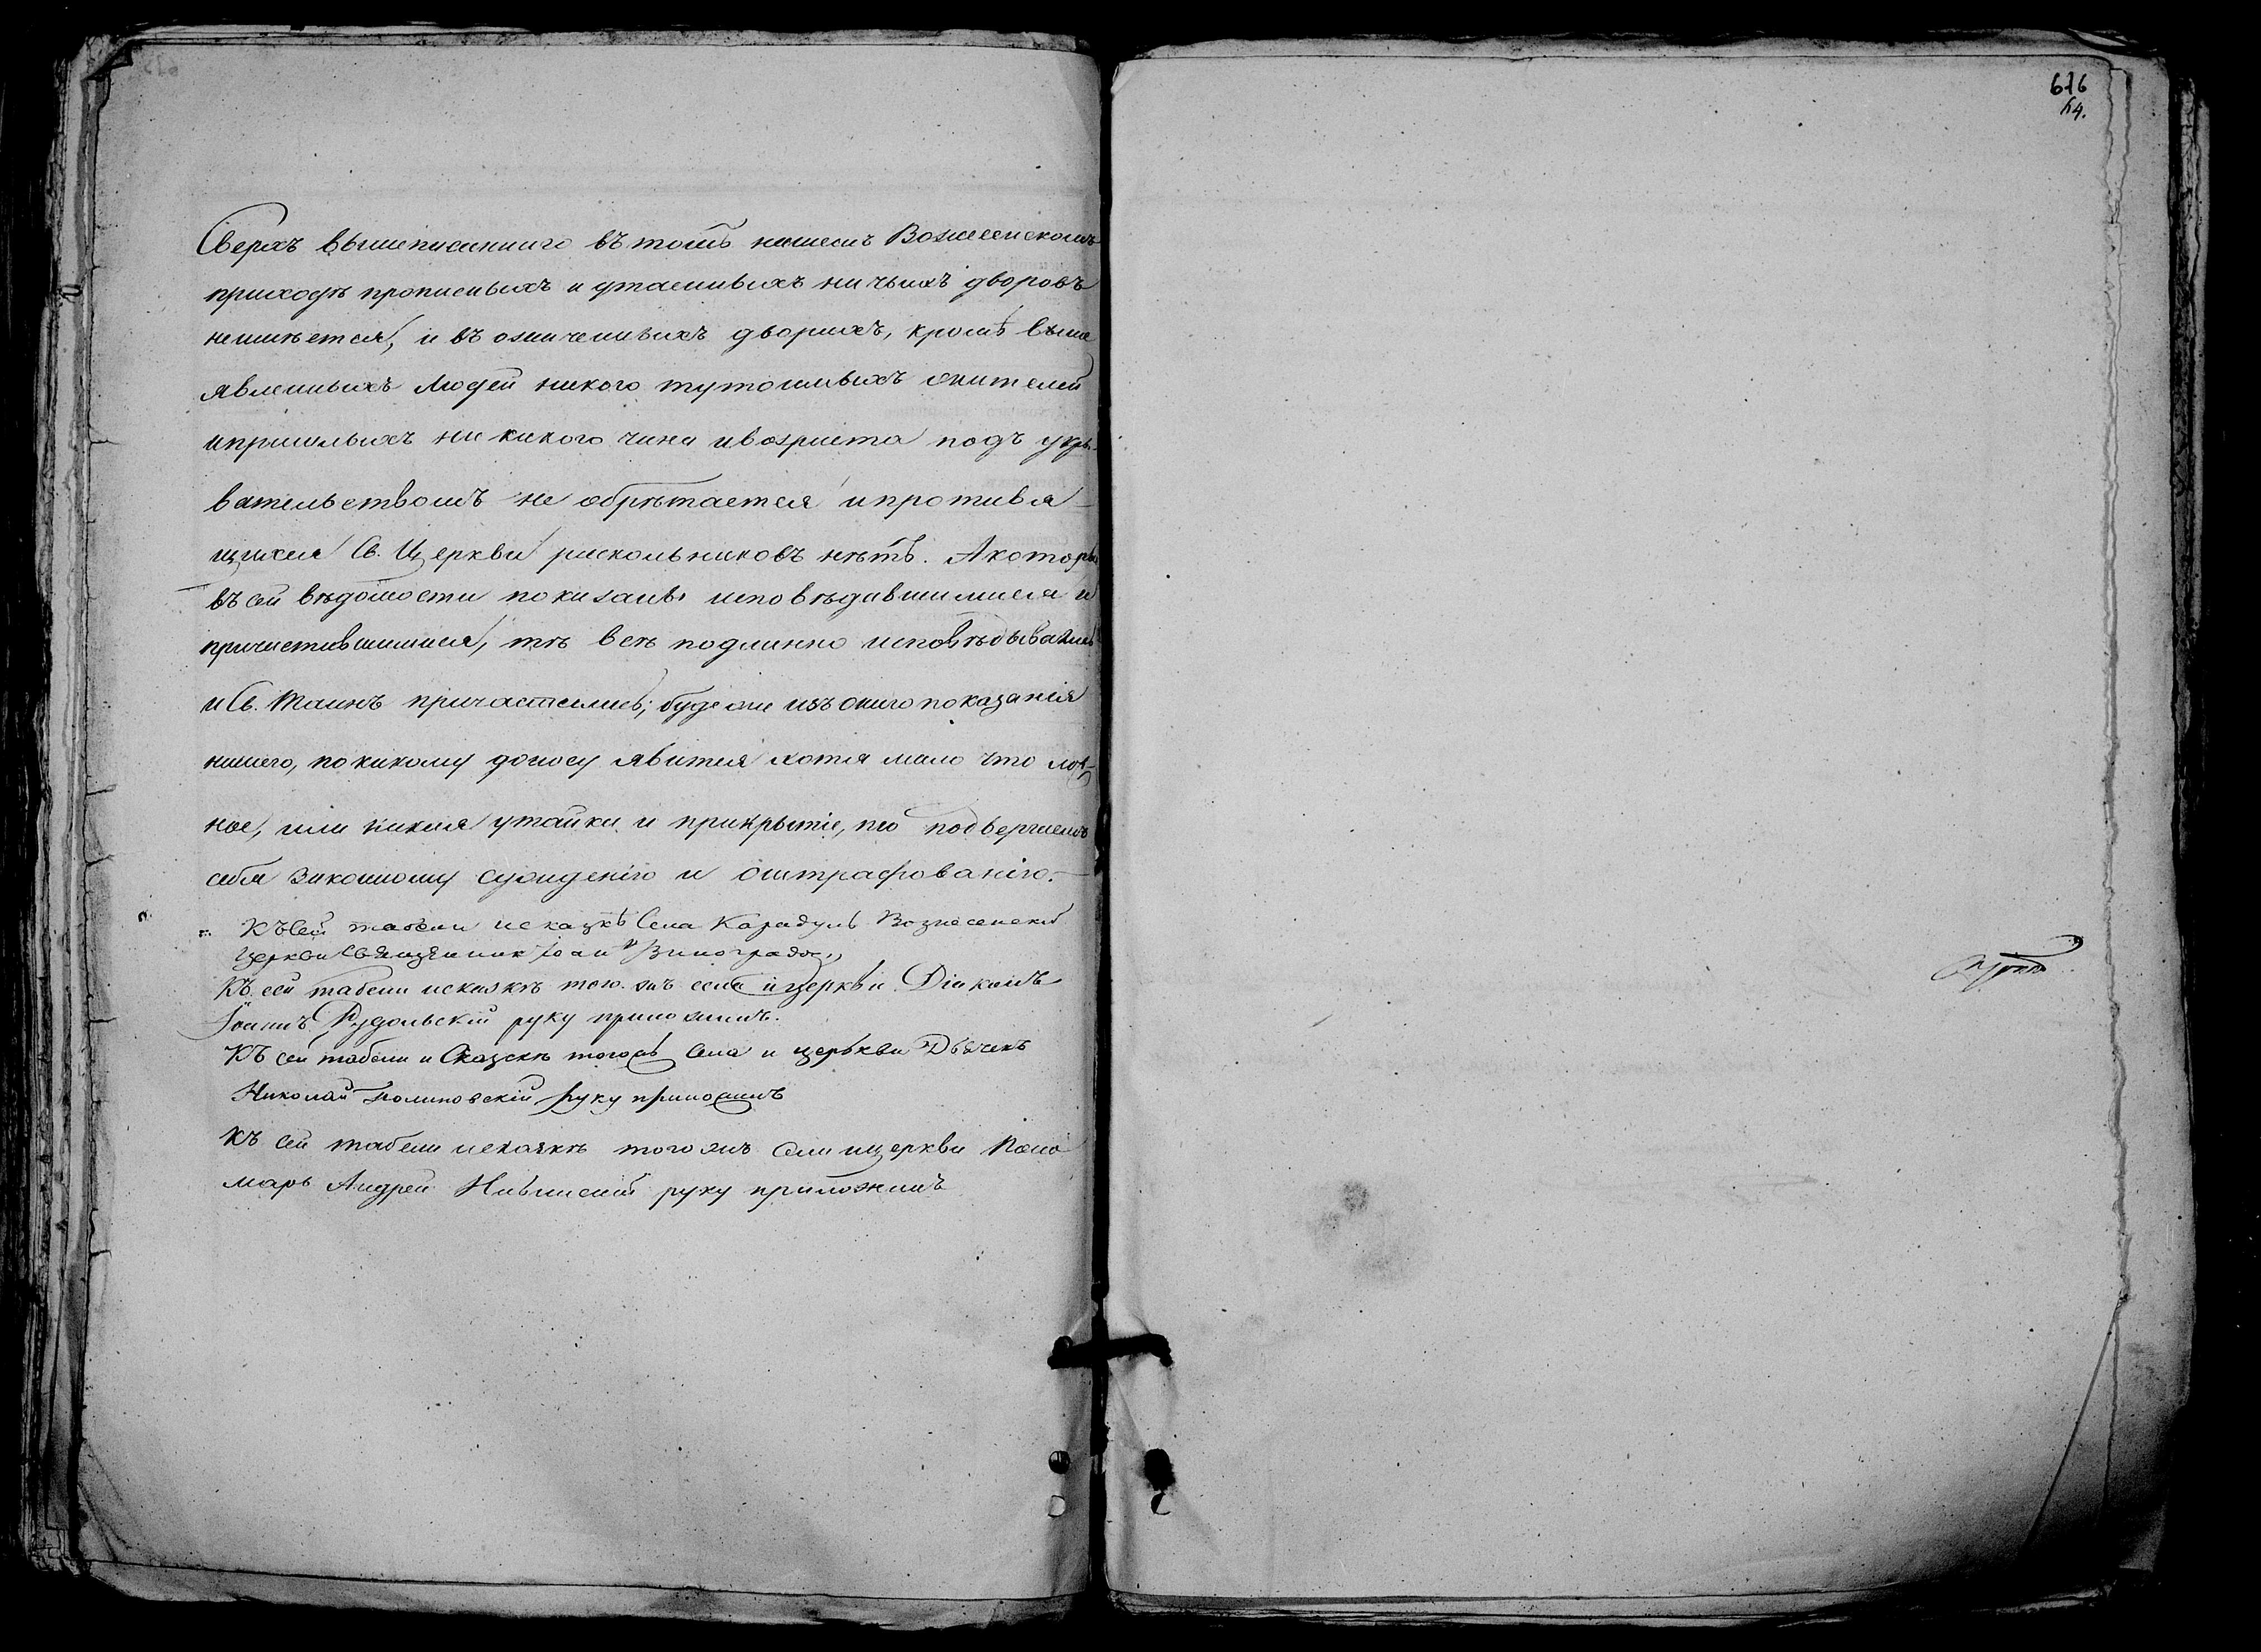 676
54.
Сверхъ вышеписаннаго въ томъ нашемъ Вознесенскомъ
приходѣ прописныхъ и утаенныхъ ни чьихъ дворовъ
неимѣется, и въ означенныхъ дворахъ, кромѣ выше
явленныхъ людей никого тутошныхъ жителей
и пришлыхъ ни какого чина и возраста подъ укры-
вательствомъ не обрѣтается и противля-
щихся Св. Церкви раскольниковъ нѣтъ. А которые
въ сей вѣдомости показаны исповѣдавшимися и
причастившимися, тѣ всѣ подлинно исповѣдывались
и Св. Таинъ причастились; буде же изъ онаго показанія
нашего, по какому доносу явится хотя мало что лож-
ное, или какая утайка и прикрытіе, то подвергаемъ
себя законному сужденію и оштрафованію.
Къ сей табели и сказкѣ Села Карадулъ Вознесенской
Церкви Священник Іоанн Виноградов
Къ сей табели и сказкѣ того жъ села и церкви Діаконъ
Іоаннъ Рудольскій руку приложилъ.
Къ сей табели и Сказскѣ того жъ Села и церькви Дьячекъ
Николай руку приложилъ
Къ сей табели и сказкѣ того жъ Села и церкви Поно
марь Андрей руку приложилъ